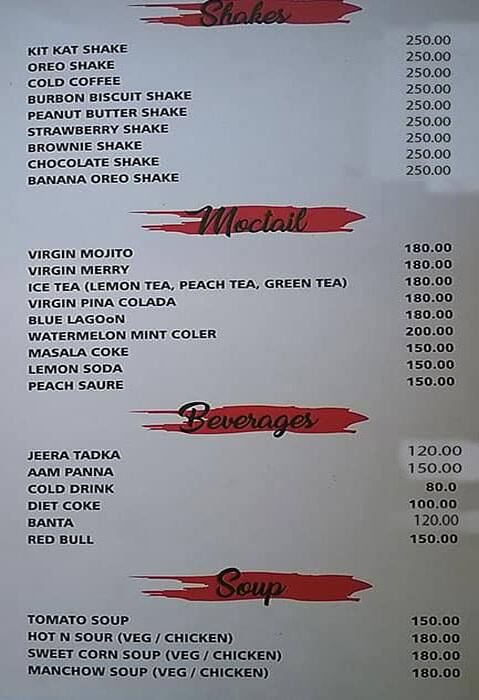 Shakes
KIT KAT SHAKE 250.00
OREO SHAKE 250.00
COLD COFFEE 250.00
BURBON BISCUIT SHAKE 250.00
PEANUT BUTTER SHAKE 250.00
STRAWBERRY SHAKE 250.00
BROWNIE SHAKE 250.00
CHOCOLATE SHAKE 250.00
BANANA OREO SHAKE 250.00
Moctail
VIRGIN MOJITO 180.00
VIRGIN MERRY 180.00
ICE TEA (LEMON TEA, PEACH TEA, GREEN TEA) 180.00
VIRGIN PINA COLADA 180.00
BLUE LAGOoN 180.00
WATERMELON MINT COLER 200.00
MASALA COKE 150.00
LEMON SODA 150.00
PEACH SAURE 150.00
Beverages
JEERA TADKA 120.00
AAM PANNA 150.00
COLD DRINK 80.0
DIET COKE 100.00
BANTA 120.00
RED BULL 150.00
Soup
TOMATO SOUP 150.00
HOT N SOUR (VEG / CHICKEN) 180.00
SWEET CORN SOUP (VEG / CHICKEN) 180.00
MANCHOW SOUP (VEG / CHICKEN) 180.00